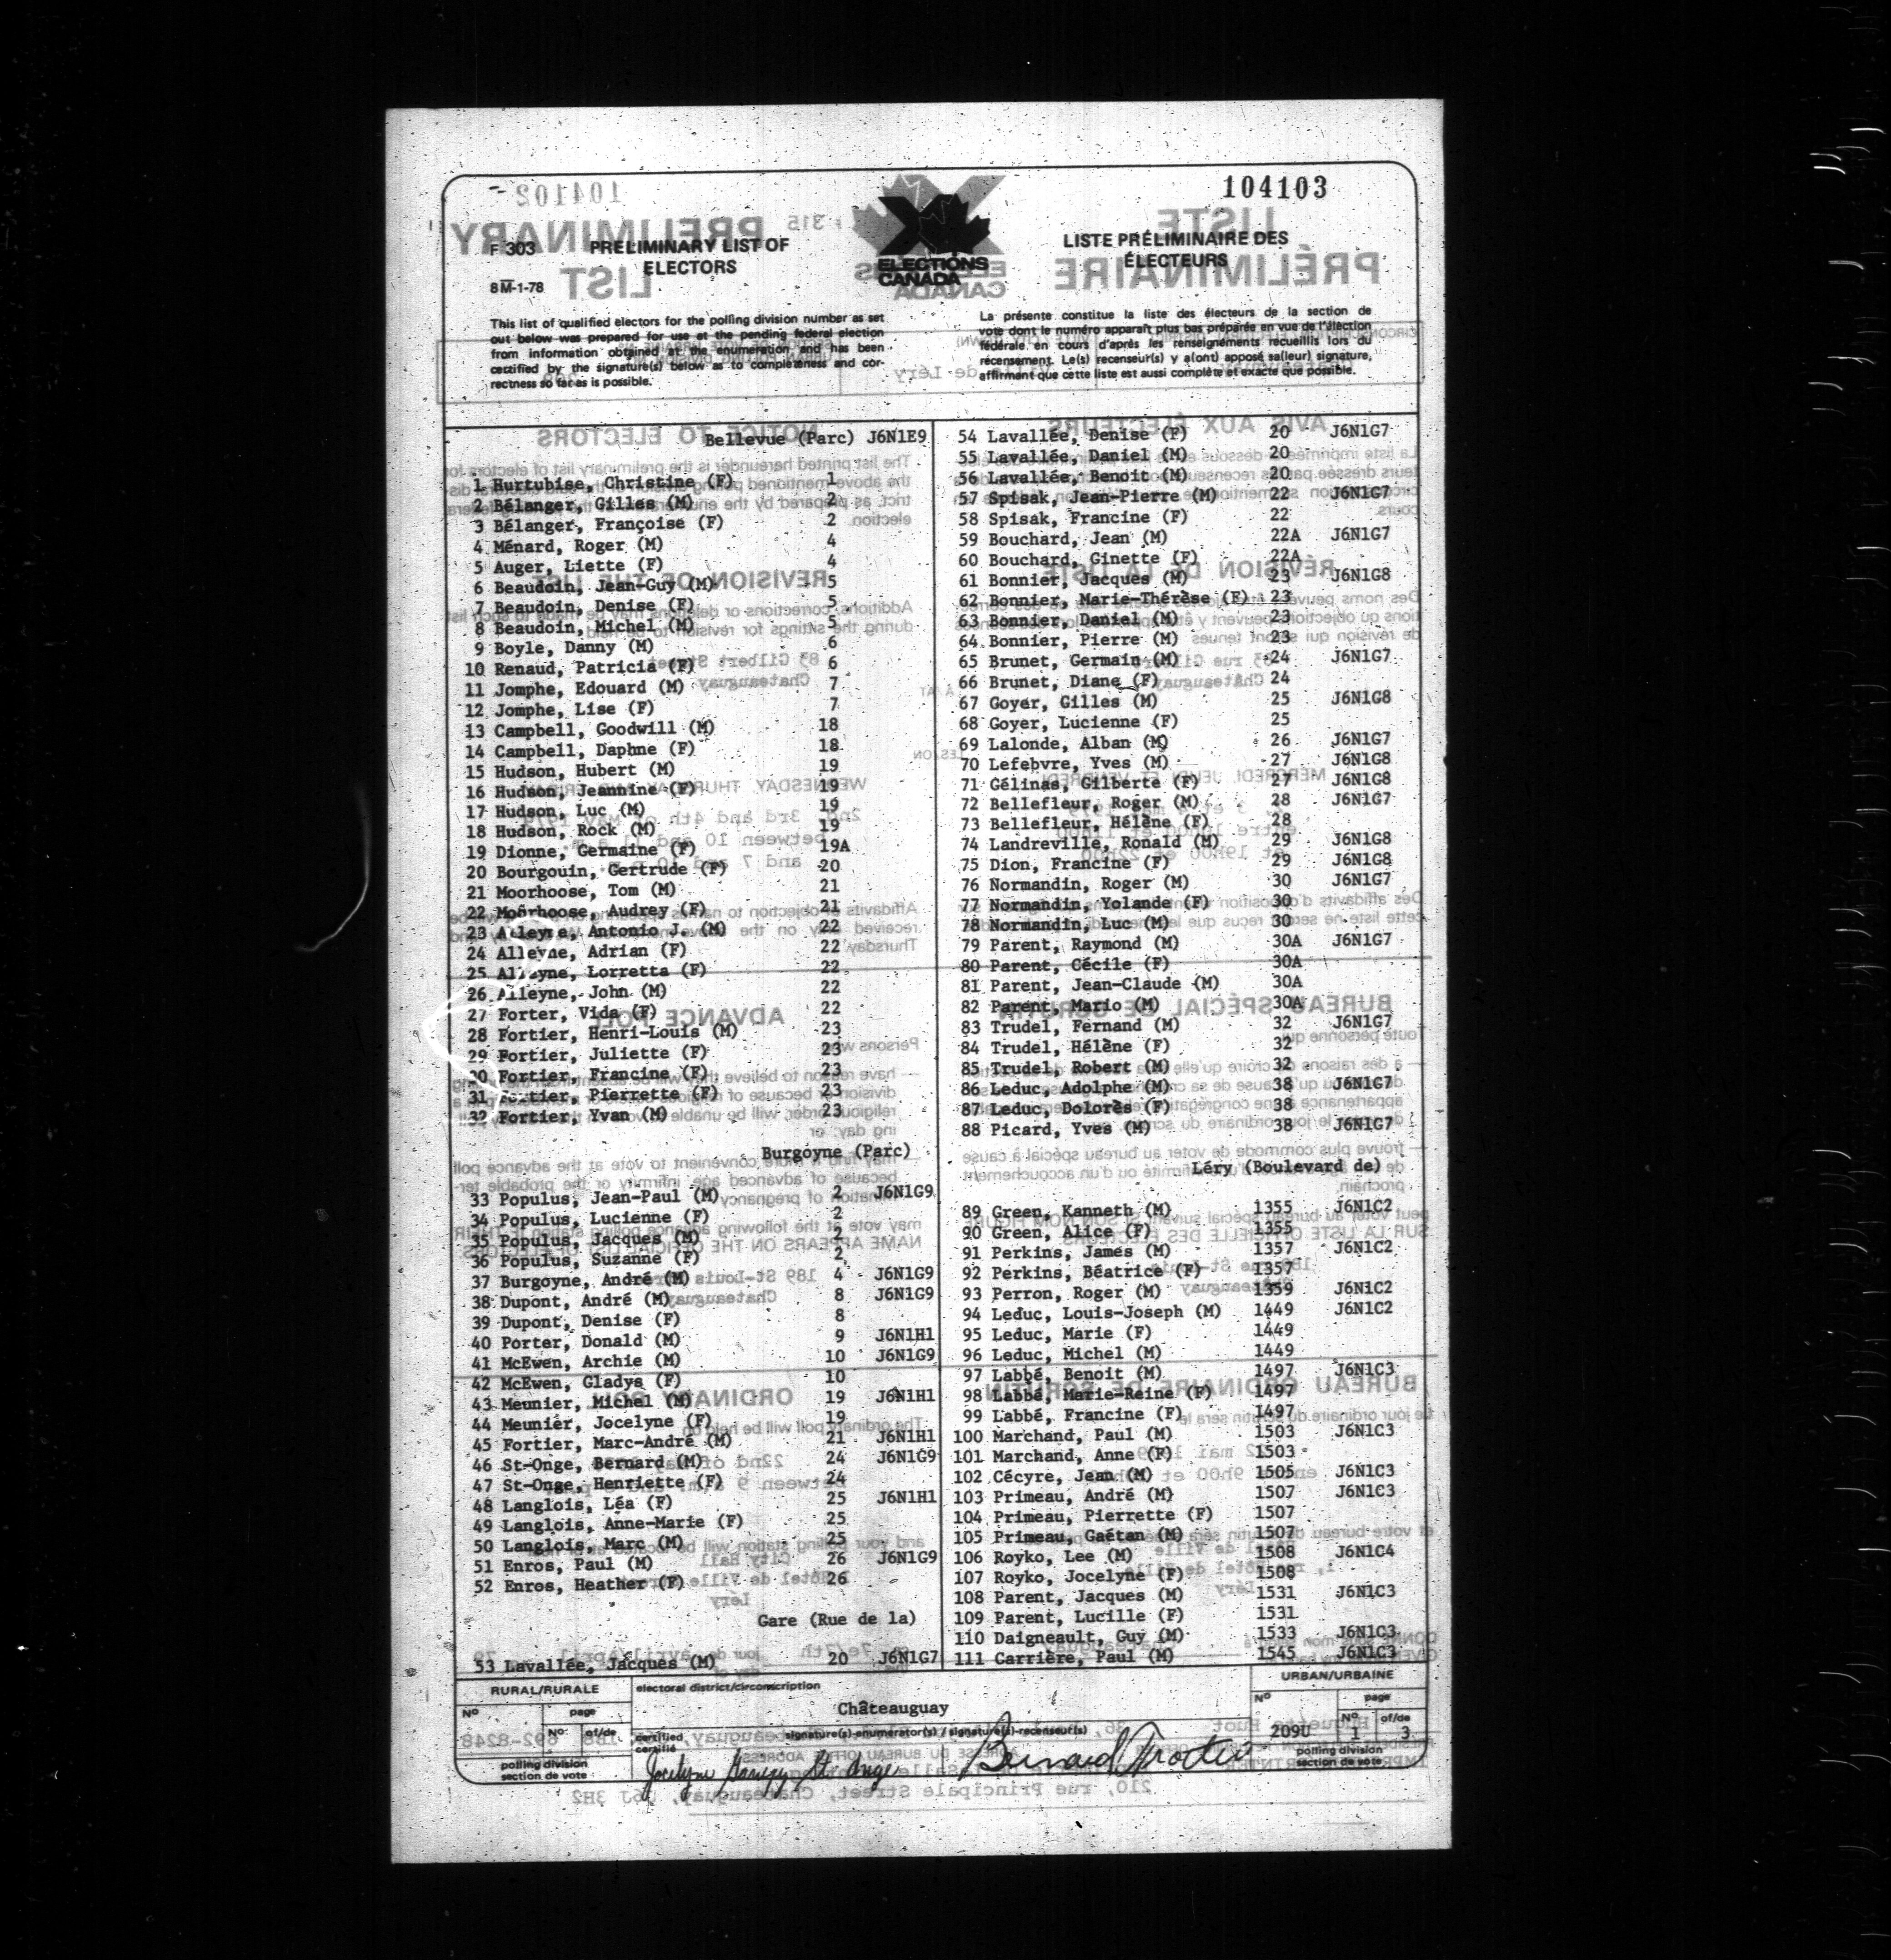 104103
F 303
PRELIMINARY LIST OF
ELECTORS
8M-1-78
ELECTIONS
CANADA
LISTE PRÉLIMINAIRE DES
ÉLECTEURS
This list of qualified electors for the polling division number as set
out below was prepared for use at the pending federal election
from information obtained at the enumeration and has been
certified by the signature(s) below as to completeness and cor-
rectness so far as is possible.
La présente constitue la liste des électeurs de la section de
vote dont le numéro apparaît plus bas préparée en vue de l'élection
fédérale en cours d'après les renseignements recueillis lors du
récensement. Le(s) recenseur(s) y a(ont) apposé sa(leur) signature,
affirmant que cette liste est aussi complète et exacte que possible.
Bellevue (Parc) J6N1E9
1 Hurtubise, Christine (F) 1
2 Bélanger, Gilles (M) 2
3 Bélanger, Françoise (F) 2
4 Ménard, Roger (M) 4
5 Auger, Liette (F) 4
6 Beaudoin, Jean-Guy (M) 5
7 Beaudoin, Denise (F) 5
8 Beaudoin, Michel (M) 5
9 Boyle, Danny (M) 6
10 Renaud, Patricia (F) 6
11 Jomphe, Edouard (M) 7
12 Jomphe, Lise (F) 7
13 Campbell, Goodwill (M) 18
14 Campbell, Daphne (F) 18
15 Hudson, Hubert (M) 19
16 Hudson, Jeannine (F) 19
17 Hudson, Luc (M) 19
18 Hudson, Rock (M) 19
19 Dionne, Germaine (F) 19A
20 Bourgouin, Gertrude (F) 20
21 Moorhoose, Tom (M) 21
22 Moorhoose, Audrey (F) 21
23 Alleyne, Antonio J. (M) 22
24 Alleyne, Adrian (F) 22
25 Alleyne, Lorretta (F) 22
26 Alleyne, John (M) 22
27 Forter, Vida (F) 22
28 Fortier, Henri-Louis (M) 23
29 Fortier, Juliette (F) 23
30 Fortier, Francine (F) 23
31 Fortier, Pierrette (F) 23
32 Fortier, Yvan (M) 23
Burgoyne (Parc)
33 Populus, Jean-Paul (M) 2 J6N1G9
34 Populus, Lucienne (F) 2
35 Populus, Jacques (M) 2
36 Populus, Suzanne (F) 2
37 Burgoyne, André (M) 4 J6N1G9
38 Dupont, André (M) 8 J6N1G9
39 Dupont, Denise (F) 8
40 Porter, Donald (M) 9 J6N1H1
41 McEwen, Archie (M) 10 J6N1G9
42 McEwen, Gladys (F) 10
43 Meunier, Michel (M) 19 J6N1H1
44 Meunier, Jocelyne (F) 19
45 Fortier, Marc-André (M) 21 J6N1H1
46 St-Onge, Bernard (M) 24 J6N1G9
47 St-Onge, Henriette (F) 24
48 Langlois, Léa (F) 25 J6N1H1
49 Langlois, Anne-Marie (F) 25
50 Langlois, Marc (M) 25
51 Enros, Paul (M) 26 J6N1G9
52 Enros, Heather (F) 26
Gare (Rue de la)
53 Lavallée, Jacques (M) 20 J6N1G7
54 Lavallée, Denise (F) 20 J6N1G7
55 Lavallée, Daniel (M) 20
56 Lavallée, Benoit (M) 20
57 Spisak, Jean-Pierre (M) 22 J6N1G7
58 Spisak, Francine (F) 22
59 Bouchard, Jean (M) 22A J6N1G7
60 Bouchard, Ginette (F) 22A
61 Bonnier, Jacques (M) 23 J6N1G8
62 Bonnier, Marie-Thérèse (F) 23
63 Bonnier, Daniel (M) 23
64 Bonnier, Pierre (M) 23
65 Brunet, Germain (M) 24 J6N1G7
66 Brunet, Diane (F) 24
67 Goyer, Gilles (M) 25 J6N1G8
68 Goyer, Lucienne (F) 25
69 Lalonde, Alban (M) 26 J6N1G7
70 Lefebvre, Yves (M) 27 J6N1G8
71 Gélinas, Gilberte (F) 27 J6N1G8
72 Bellefleur, Roger (M) 28 J6N1G7
73 Bellefleur, Hélène (F) 28
74 Landreville, Ronald (M) 29 J6N1G8
75 Dion, Francine (F) 29 J6N1G8
76 Normandin, Roger (M) 30 J6N1G7
77 Normandin, Yolande (F) 30
78 Normandin, Luc (M) 30
79 Parent, Raymond (M) 30A J6N1G7
80 Parent, Cécile (F) 30A
81 Parent, Jean-Claude (M) 30A
82 Parent, Mario (M) 30A
83 Trudel, Fernand (M) 32 J6N1G7
84 Trudel, Hélène (F) 32
85 Trudel, Robert (M) 32
86 Leduc, Adolphe (M) 38 J6N1G7
87 Leduc, Dolorès (F) 38
88 Picard, Yves (M) 38 J6N1G7
Léry (Boulevard de)
89 Green, Kanneth (M) 1355 J6N1C2
90 Green, Alice (F) 1355
91 Perkins, James (M) 1357 J6N1C2
92 Perkins, Béatrice (F) 1357
93 Perron, Roger (M) 1359 J6N1C2
94 Leduc, Louis-Joseph (M) 1449 J6N1C2
95 Leduc, Marie (F) 1449
96 Leduc, Michel (M) 1449
97 Labbé, Benoit (M) 1497 J6N1C3
98 Labbé, Marie-Reine (F) 1497
99 Labbé, Francine (F) 1497
100 Marchand, Paul (M) 1503 J6N1C3
101 Marchand, Anne (F) 1503
102 Cécyre, Jean (M) 1505 J6N1C3
103 Primeau, André (M) 1507 J6N1C3
104 Primeau, Pierrette (F) 1507
105 Primeau, Gaétan (M) 1507
106 Royko, Lee (M) 1508 J6N1C4
107 Royko, Jocelyne (F) 1508
108 Parent, Jacques (M) 1531 J6N1C3
109 Parent, Lucille (F) 1531
110 Daigneault, Guy (M) 1533 J6N1C3
111 Carrière, Paul (M) 1545 J6N1C3
RURAL/RURALE
No page
No. of/de
polling division
section de vote
electoral district/circonscription
Châteauguay
certified
certifié
signature(s)-enumerator(s) / signature(s)-recenseur(s)
Jocelyne St. Onge Bernard
URBAN/URBAINE
No page
No of/de
209U 1 3
polling division
section de vote